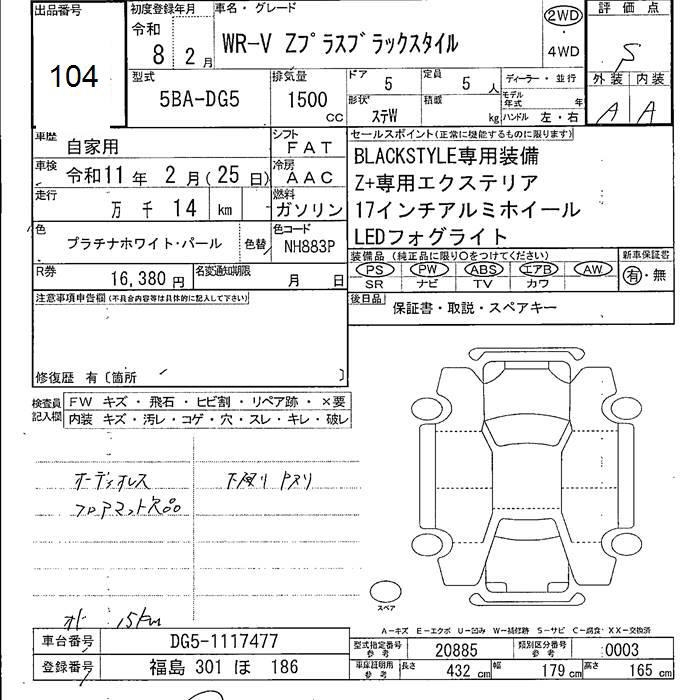 出品番号
104
初度登録年月
令和
8 2 月
車名・グレード
WR-V Zプラスブラックスタイル
2WD
・
4WD
評価点
S
外装 内装
A A
型式
5BA-DG5
排気量
1500 cc
ドア 5
定員 5 人
形状 ステW
積載 kg
ディーラー・並行
モデル年式 年
ハンドル 左・右
車歴 自家用
シフト FAT
車検 令和11年 2月(25日)
冷房 AAC
走行 万 千 14 km
燃料 ガソリン
色 プラチナホワイト・パール 色替
色コード NH883P
R券 16,380 円
名変通知期限 月 日
セールスポイント(正常に機能するものに限ります)
BLACKSTYLE専用装備
Z+専用エクステリア
17インチアルミホイール
LEDフォグライト
装備品 (純正品に限り○をつけてください)
PS PW ABS エアB AW
SR ナビ TV カワ
新車保証書
有・無
後日品 保証書・取説・スペアキー
注意事項申告欄(不具合内容等は具体的に記入して下さい)
修復歴 有〔箇所 〕
検査員記入欄
FW キズ・飛石・ヒビ割・リペア跡・×要
内装 キズ・汚レ・コゲ・穴・スレ・キレ・破レ
オーディオレス
フロアマット欠品
下廻り
オド 15km
スペア
A-キズ E-エクボ U-凹み W-補修跡 S-サビ C-腐食・XX-交換済
車台番号 DG5-1117477
登録番号 福島 301 ほ 186
型式指定番号 参考 20885
類別区分番号 参考 0003
車庫証明用 参考 長さ 432 cm 幅 179 cm 高さ 165 cm